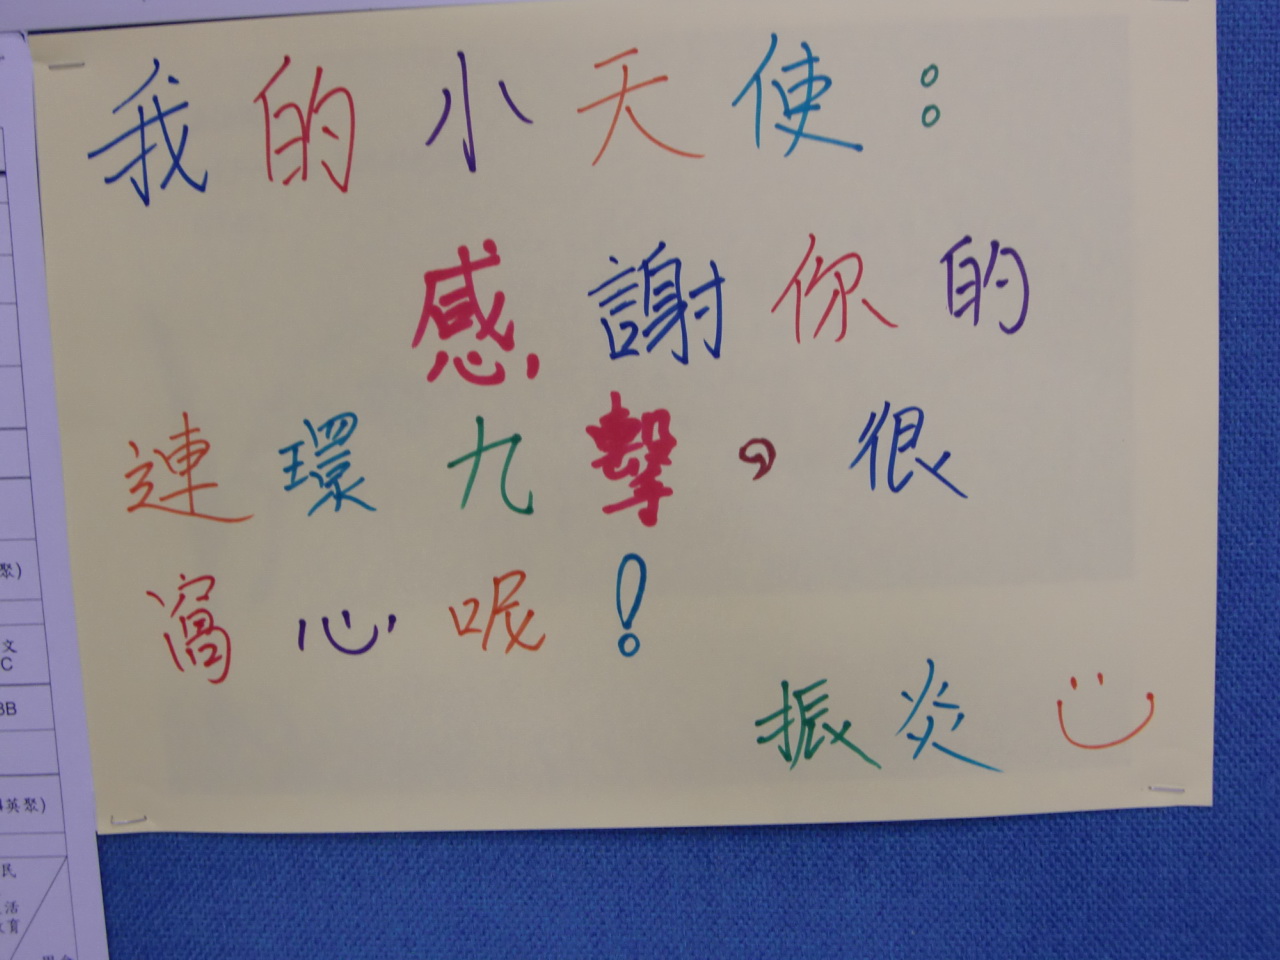 我的小天使：
感謝你的
連環九擊，很
窩心呢！
振炎
聚)
文
C
BB
英聚)
民
活
育